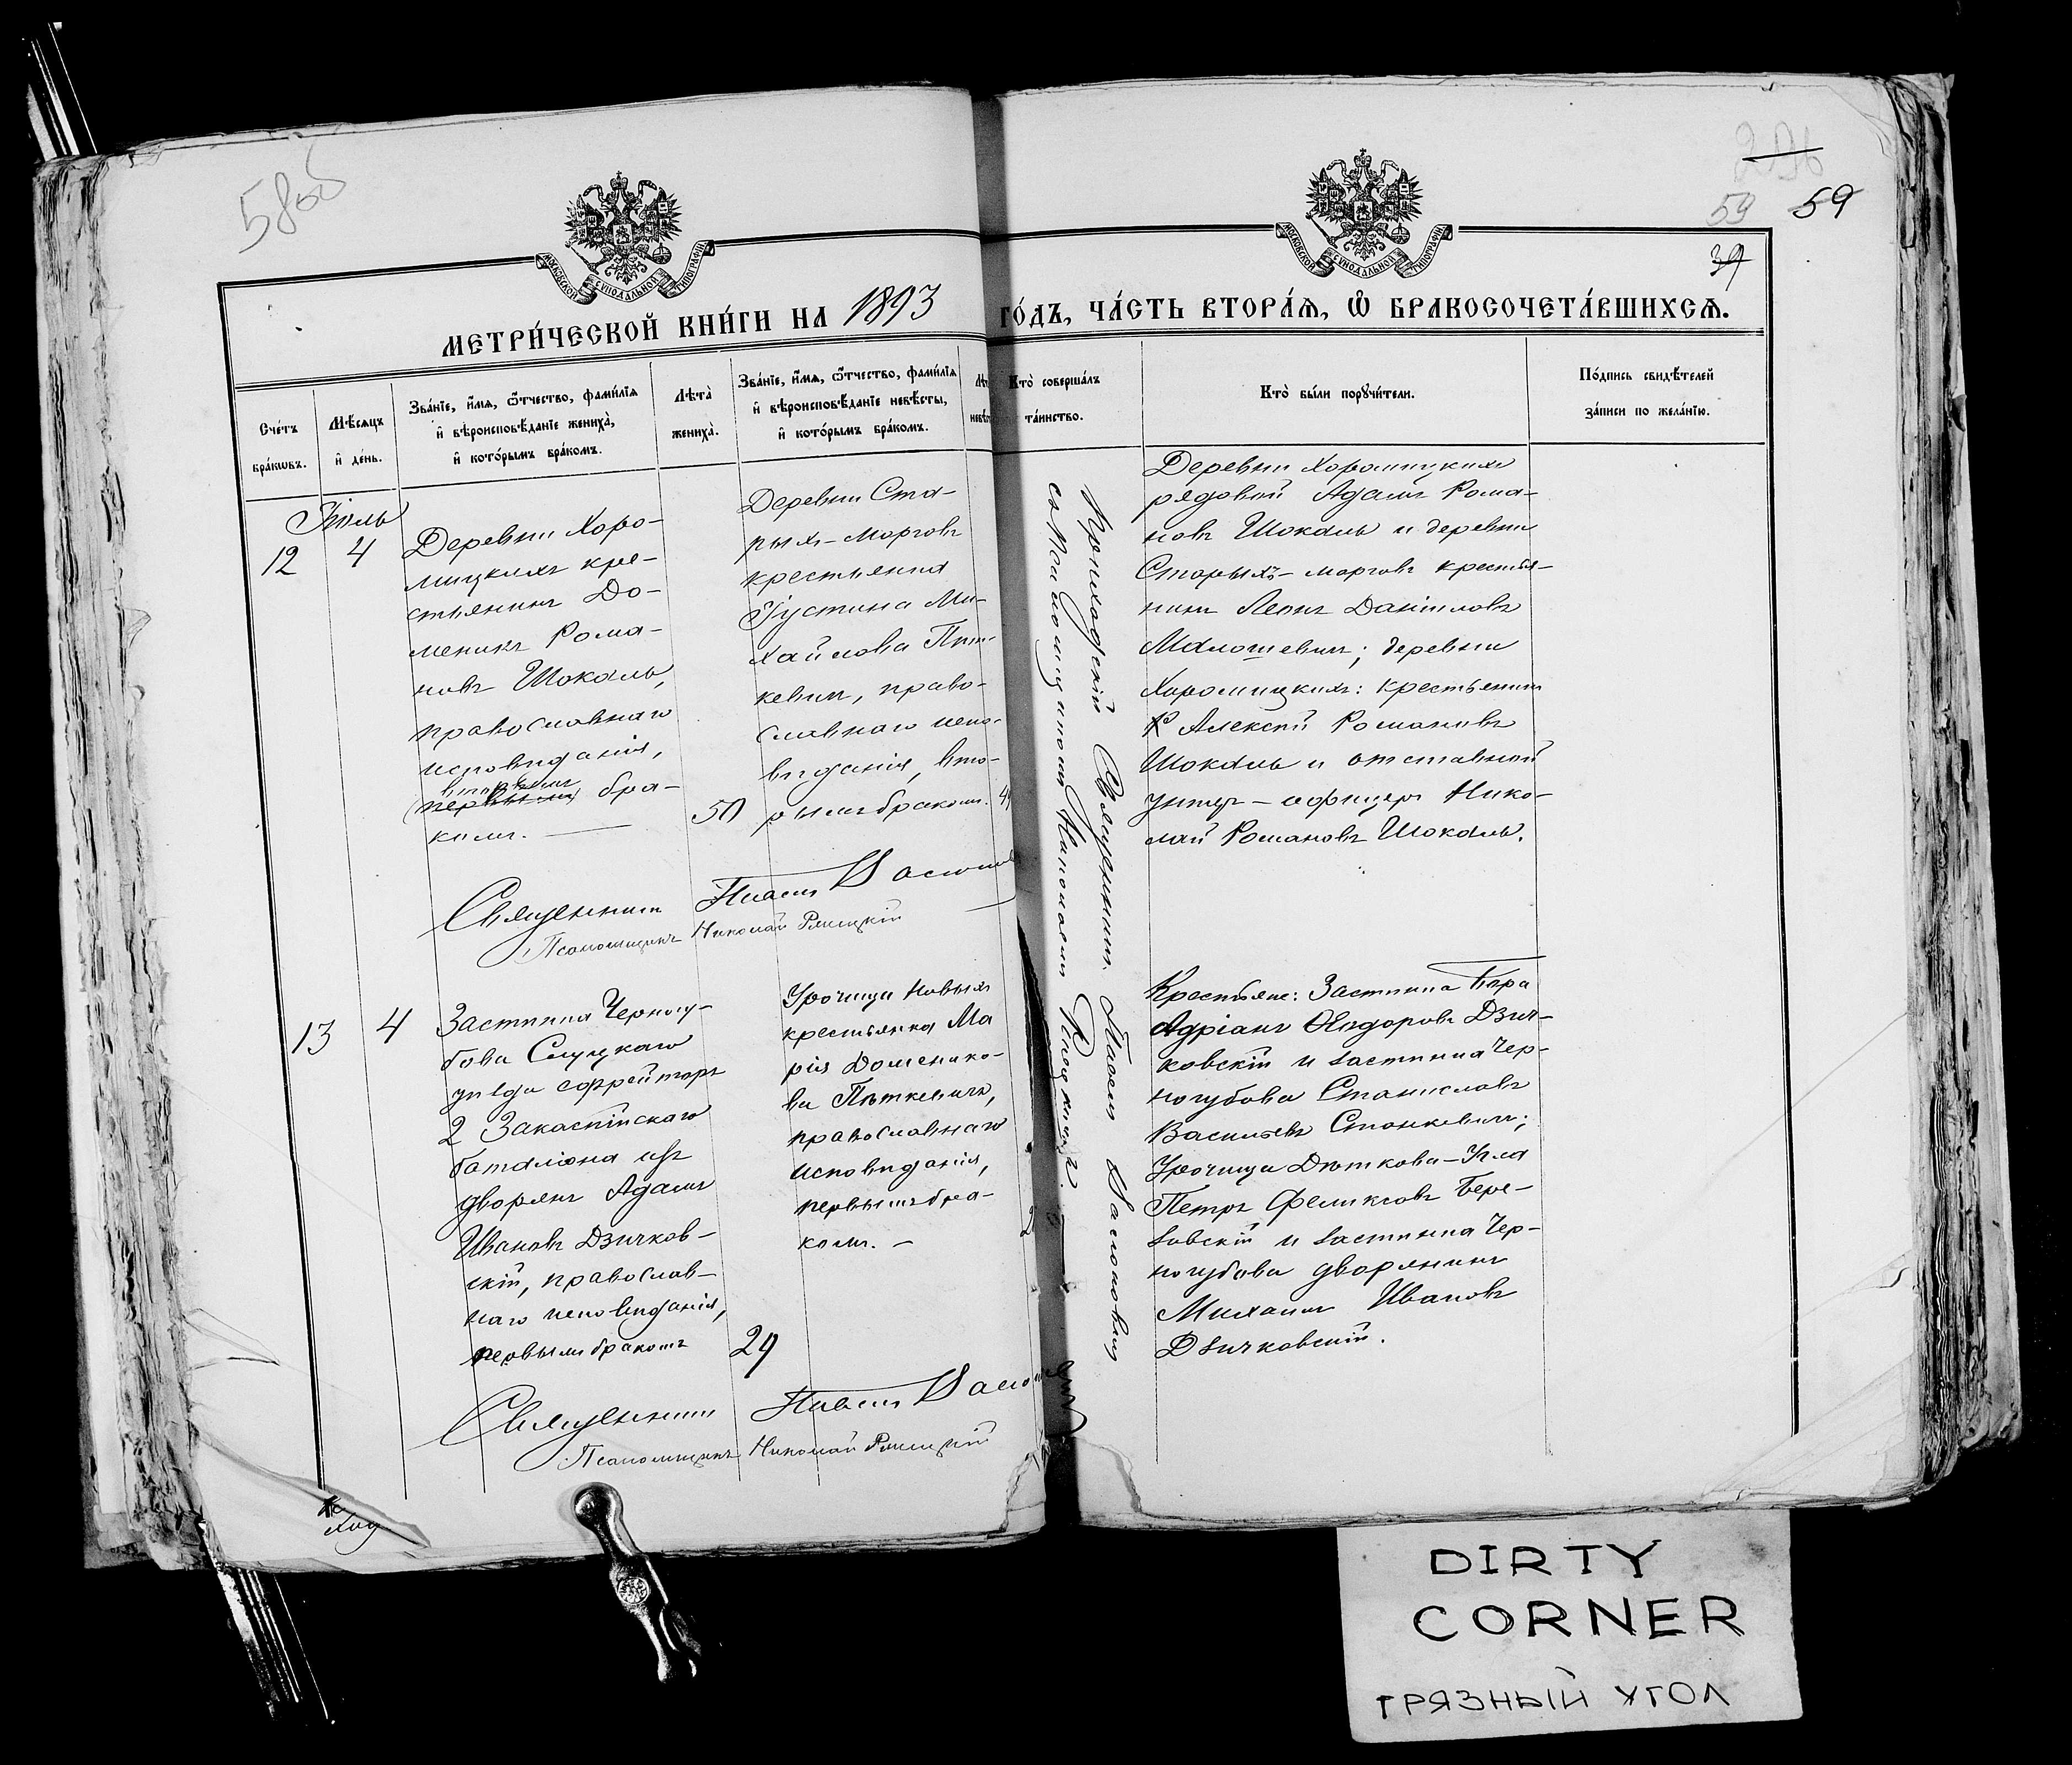 58об
59 59
39
МОСКОВСКОЙ СѴНОДАЛЬНОЙ ТИПОГРАФІИ
МОСКОВСКОЙ СѴНОДАЛЬНОЙ ТИПОГРАФІИ
МЕТРИ́ЧЕСКОЙ КНИ́ГИ НА 1893 ГО́ДЪ, ЧА́СТЬ ВТОРА́Ѧ, Ѽ БРАКОСОЧЕТА́ВШИХСѦ.
Сче́тъ
бра́кѡвъ.
Мѣ́сѧцъ
и҆ де́нь.
Зва́нїе, и҆́мѧ, ѿтчество, фами́лїѧ
и҆ вѣроисповѣ́данїе жениха̀,
и҆ кото́рымъ бра́комъ.
Лѣта̀
жениха̀.
Зва́нїе, и҆́мѧ, ѿтчество, фами́лїѧ
и҆ вѣроисповѣ́данїе невѣ́сты,
и҆ кото́рымъ бра́комъ.
Лѣ
невѣ
Кто̀ соверша́лъ
та́инство.
Кто̀ бы́ли порꙋчи́тели.
По́дпись свидѣ́телей
за́писи по жела́нїю.
Іюль
12
4
Деревни Хоро-
мицкихъ кре-
стьянинъ До-
меникъ Рома-
новъ Шокаль,
православнаго
исповѣданія,
вторымъ
первымъ бра-
комъ.
50
Деревни Ста-
рыхъ-Морговъ
крестьянка
Іустина Ми-
хайлова Пѣт-
кевичъ, право-
славнаго испо-
вѣданія, вто-
рымъ бракомъ.
Приходскій Священникъ Павелъ
съ Псаломщикомъ Николаемъ
Деревни Хоромицкихъ
рядовой Адамъ Рома-
новъ Шокаль и деревни
Старыхъ-морговъ крестья-
нинъ Леонъ Даніиловъ
Малошевичъ; деревни
Хоромицкихъ: крестьянинъ
Алексѣй Романовъ
Шокаль и отставной
унтеръ-офицеръ Нико-
лай Романовъ Шокаль.
Священникъ Павелъ
Псаломщикъ Николай
13
4
Застѣнка Черногу-
бова Слуцкаго
уѣзда ефрейторъ
2 Закаспійскаго
баталіона изъ
дворянъ Адамъ
Ивановъ Дзичков-
скій, православ-
наго исповѣданія,
первымъ бракомъ
29
Урочища Новыхъ
крестьянка Ма
рія Доменико-
ва Пѣткевичъ,
православнаго
исповѣданія,
первымъ бра-
комъ. -
2
Крестьяне: Застѣнка
Адріанъ Ѳеодоровъ Дзич-
ковскій и застѣнка Чер-
ногубова Станиславъ
Васильевъ Станкевичъ;
Урочища
Петръ Феликсовъ Бере-
зовскій и застѣнка Чер-
ногубова дворянинъ
Михаилъ Ивановъ
Дзичковскій.
Священникъ Павелъ
Псаломщикъ Николай
DIRTY
CORNER
ГРЯЗНЫЙ УГОЛ